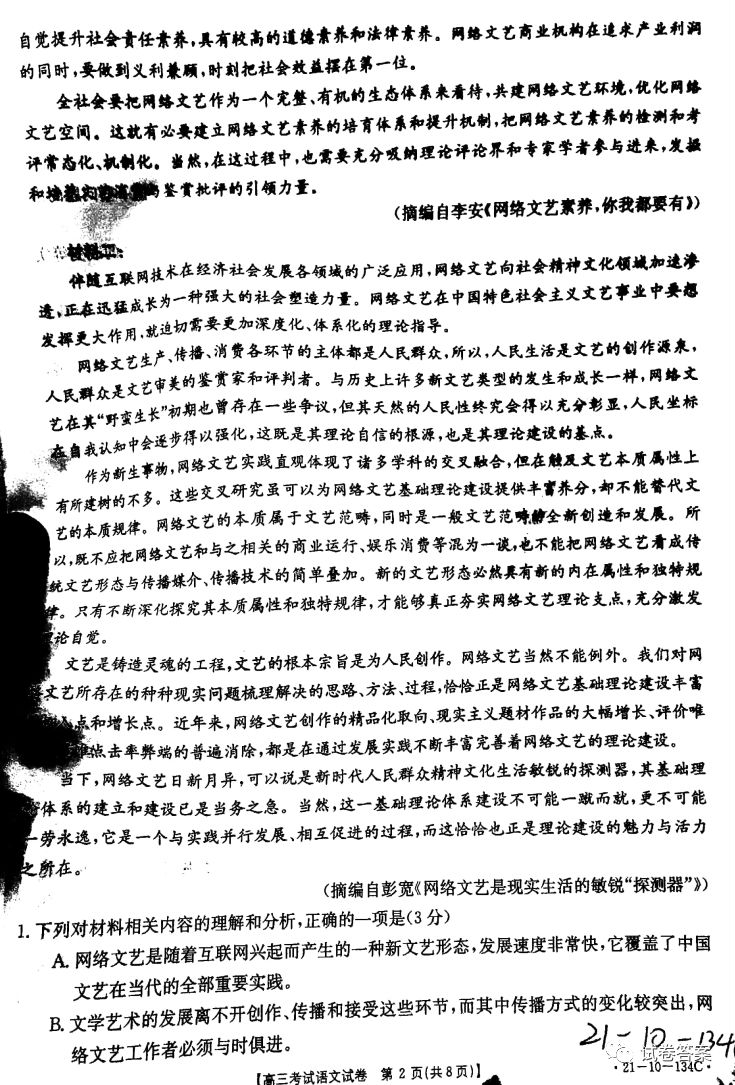 自觉提升社会责任素养,具有较高的道德素养和法律素养。网络文艺商业机构在追求产业利润
的同时,要做到义利兼顾,时刻把社会效益摆在第一位。
全社会要把网络文艺作为一个完整、有机的生态体系来看待,共建网络文艺环境,优化网络
文艺空间。这就有必要建立网络文艺素养的培育体系和提升机制,把网络文艺素养的检测和考
评常态化、机制化。当然,在这过程中,也需要充分吸纳理论评论界和专家学者参与进来,发掘
和 鉴赏批评的引领力量。
(摘编自李安《网络文艺素养,你我都要有》)
材料二:
伴随互联网技术在经济社会发展各领域的广泛应用,网络文艺向社会精神文化领域加速渗
透,正在迅猛成长为一种强大的社会塑造力量。网络文艺在中国特色社会主义文艺事业中要想
发挥更大作用,就迫切需要更加深度化、体系化的理论指导。
网络文艺生产、传播、消费各环节的主体都是人民群众,所以,人民生活是文艺的创作源泉,
人民群众是文艺审美的鉴赏家和评判者。与历史上许多新文艺类型的发生和成长一样,网络文
艺在其“野蛮生长”初期也曾存在一些争议,但其天然的人民性终究会得以充分彰显,人民坐标
在自我认知中会逐步得以强化,这既是其理论自信的根源,也是其理论建设的基点。
作为新生事物,网络文艺实践直观体现了诸多学科的交叉融合,但在触及文艺本质属性上
有所建树的不多。这些交叉研究虽可以为网络文艺基础理论建设提供丰富养分,却不能替代文
艺的本质规律。网络文艺的本质属于文艺范畴,同时是一般文艺范畴的全新创造和发展。所
以,既不应把网络文艺和与之相关的商业运行、娱乐消费等混为一谈,也不能把网络文艺看成传
统文艺形态与传播媒介、传播技术的简单叠加。新的文艺形态必然具有新的内在属性和独特规
律。只有不断深化探究其本质属性和独特规律,才能够真正夯实网络文艺理论支点,充分激发
论自觉。
文艺是铸造灵魂的工程,文艺的根本宗旨是为人民创作。网络文艺当然不能例外。我们对网
文艺所存在的种种现实问题梳理解决的思路、方法、过程,恰恰正是网络文艺基础理论建设丰富
点和增长点。近年来,网络文艺创作的精品化取向、现实主义题材作品的大幅增长、评价唯
点击率弊端的普遍消除,都是在通过发展实践不断丰富完善着网络文艺的理论建设。
当下,网络文艺日新月异,可以说是新时代人民群众精神文化生活敏锐的探测器,其基础理
体系的建立和建设已是当务之急。当然,这一基础理论体系建设不可能一蹴而就,更不可能
一劳永逸,它是一个与实践并行发展、相互促进的过程,而这恰恰也正是理论建设的魅力与活力
之所在。
(摘编自彭宽《网络文艺是现实生活的敏锐“探测器”》)
1. 下列对材料相关内容的理解和分析,正确的一项是(3分)
A. 网络文艺是随着互联网兴起而产生的一种新文艺形态,发展速度非常快,它覆盖了中国
文艺在当代的全部重要实践。
B. 文学艺术的发展离不开创作、传播和接受这些环节,而其中传播方式的变化较突出,网
络文艺工作者必须与时俱进。
21-10-134
试卷答案
【高三考试语文试卷 第2页(共8页)】
·21-10-134C·